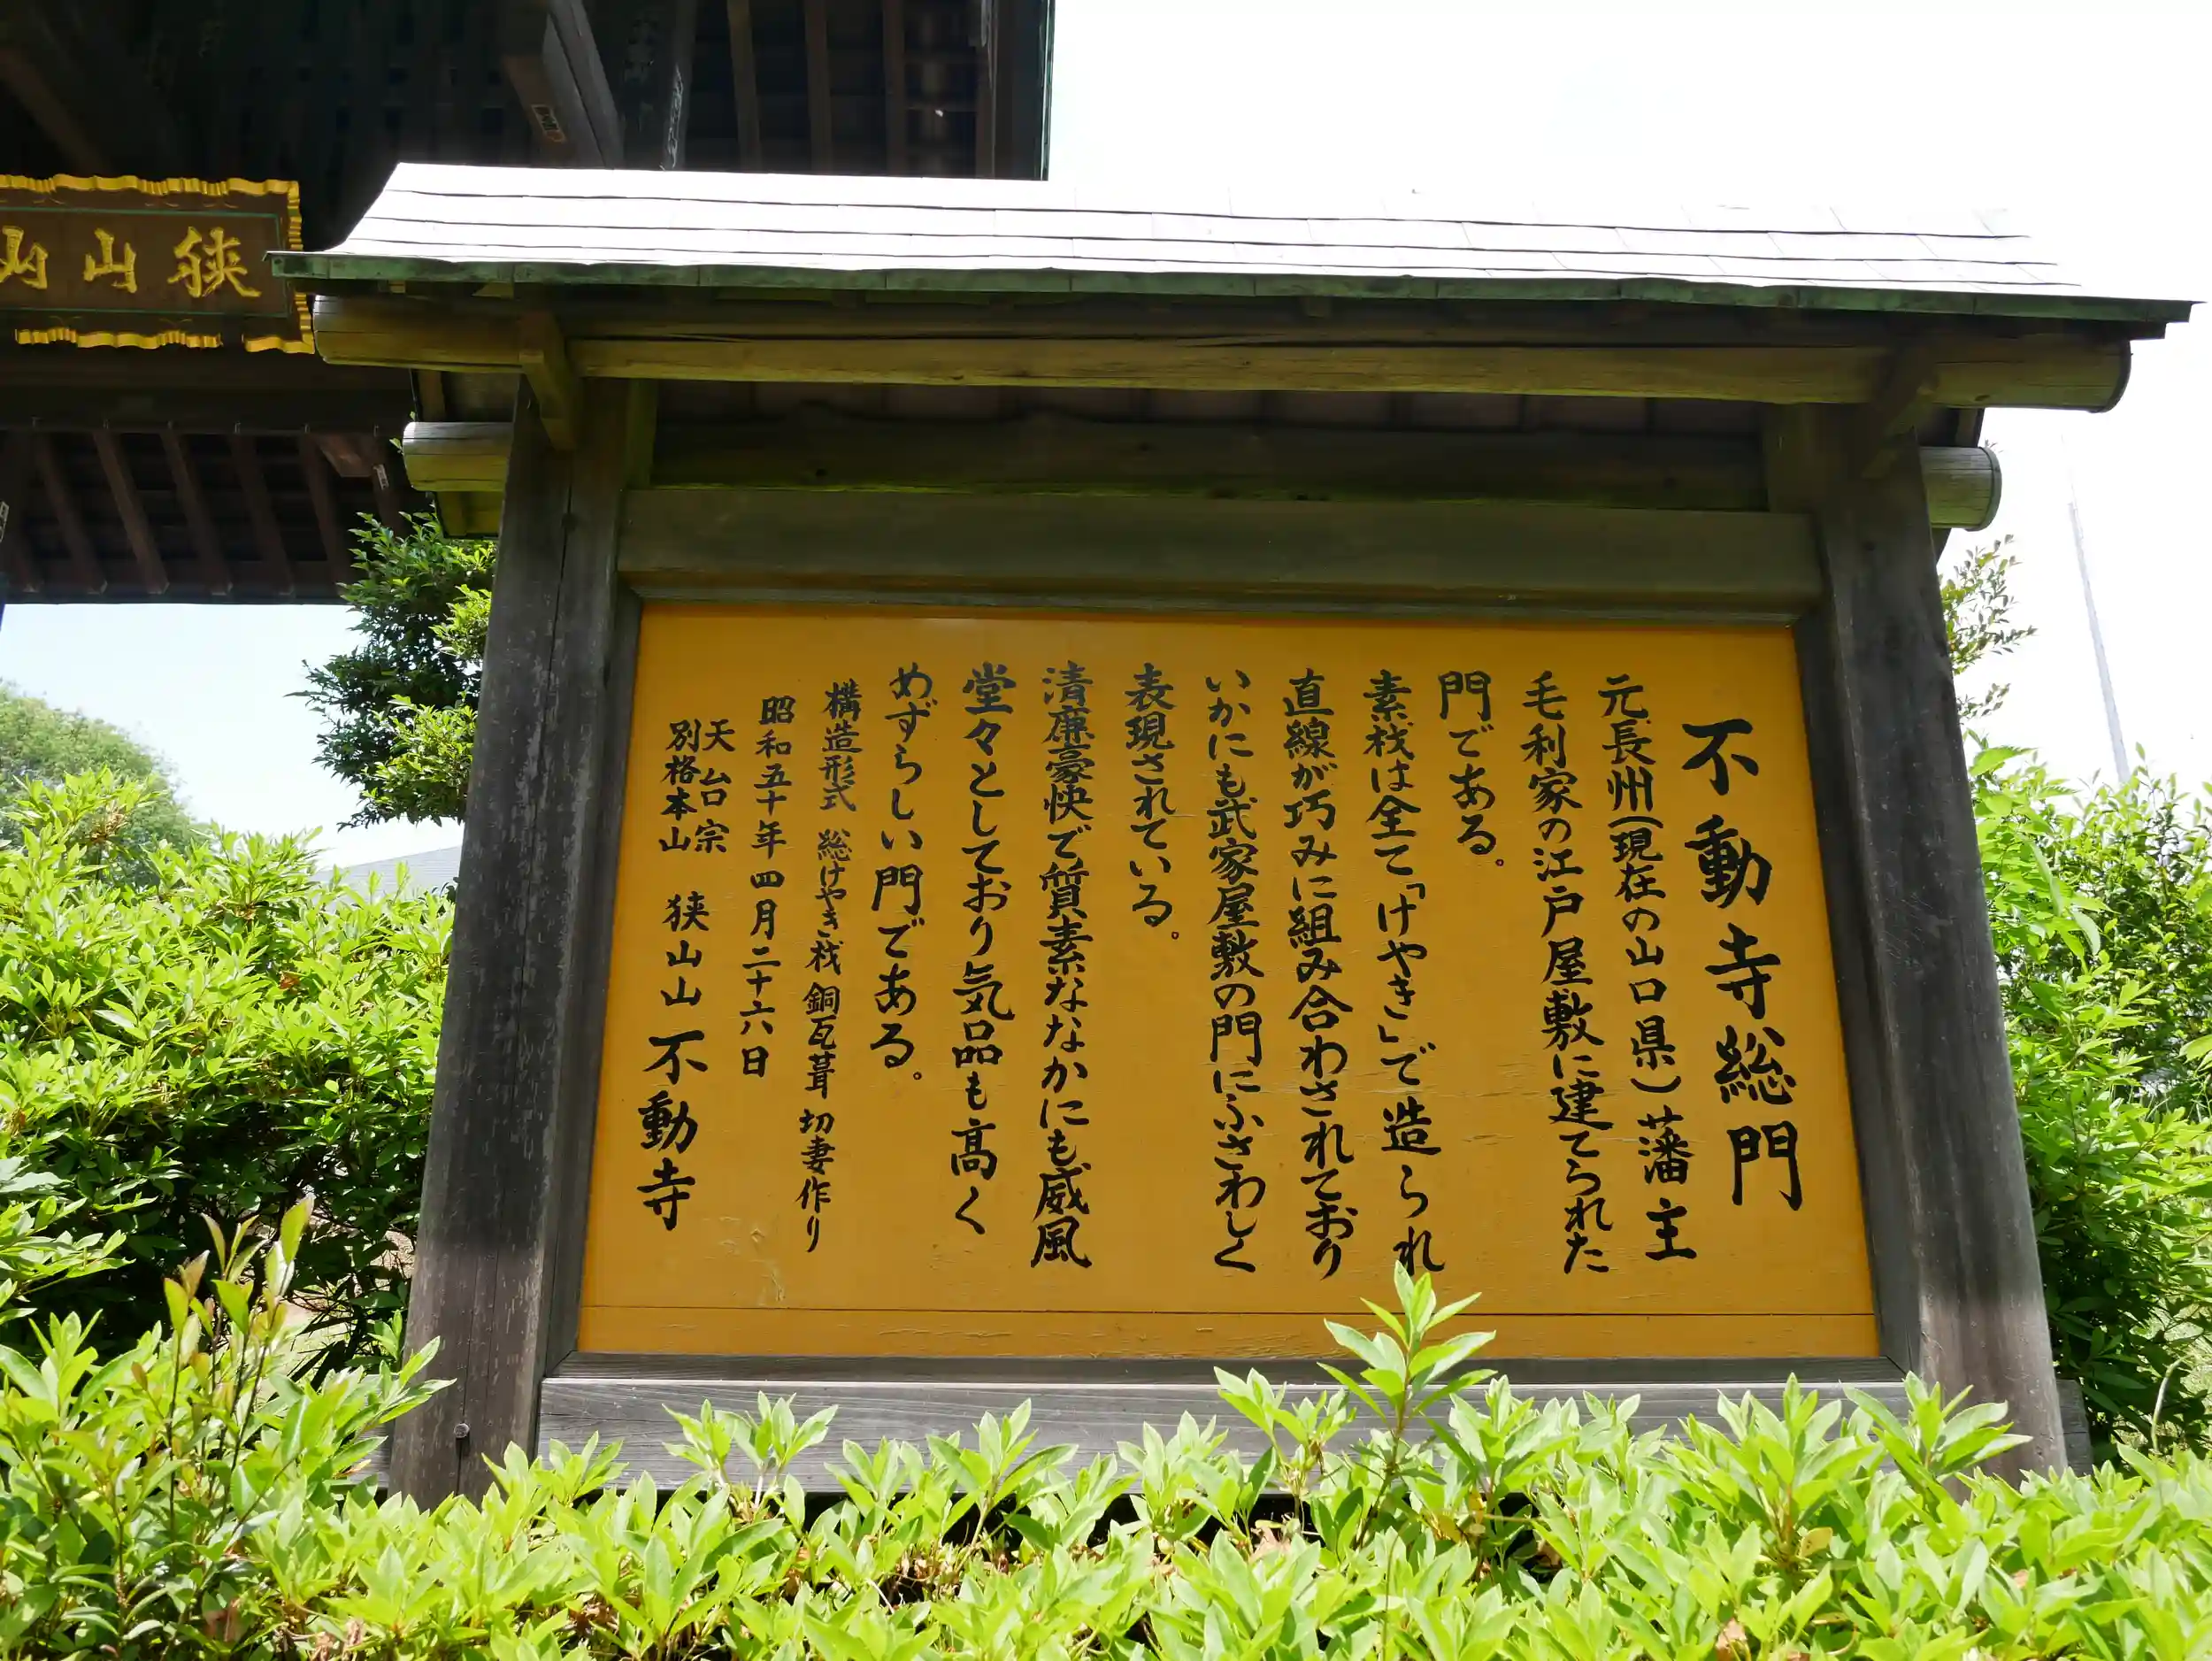 不動寺総門
元長州(現在の山口県)藩主
毛利家の江戸屋敷に建てられた
門である。
素材は全て「けやき」で造られ
直線が巧みに組み合わされており
いかにも武家屋敷の門にふさわしく
表現されている。
清廉豪快で質素ななかにも威風
堂々としており気品も高く
めずらしい門である。
構造形式 総けやき材 銅瓦葺 切妻作り
昭和五十年四月二十六日
天台宗
別格本山 狭山山 不動寺
狭山山